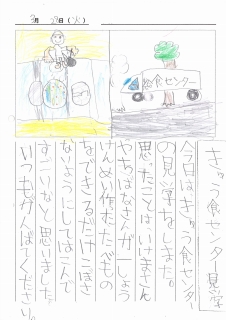 3月27日(火)
給食センター
きゅう食センター見学
今日はきゅう食センター
の見学をしました。
思ったことは、いけません
やちばなさんがいっしょう
けんめい作ったたべもの
をできるだけこぼさ
ないようにしてはこんで
すごいなと思いました。
いつもがんばてください。